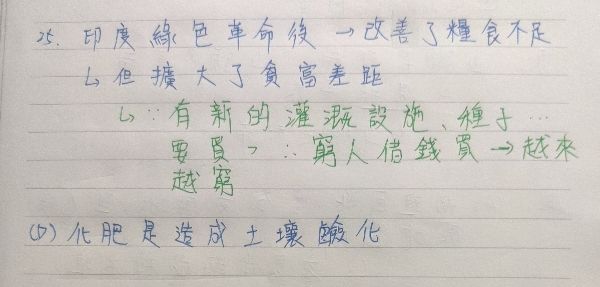 25. 印度綠色革命後→改善了糧食不足
↳但擴大了貧富差距
↳∵有新的灌溉設施、種子…
要買，∴窮人借錢買→越來
越窮
(D) 化肥是造成土壤鹼化